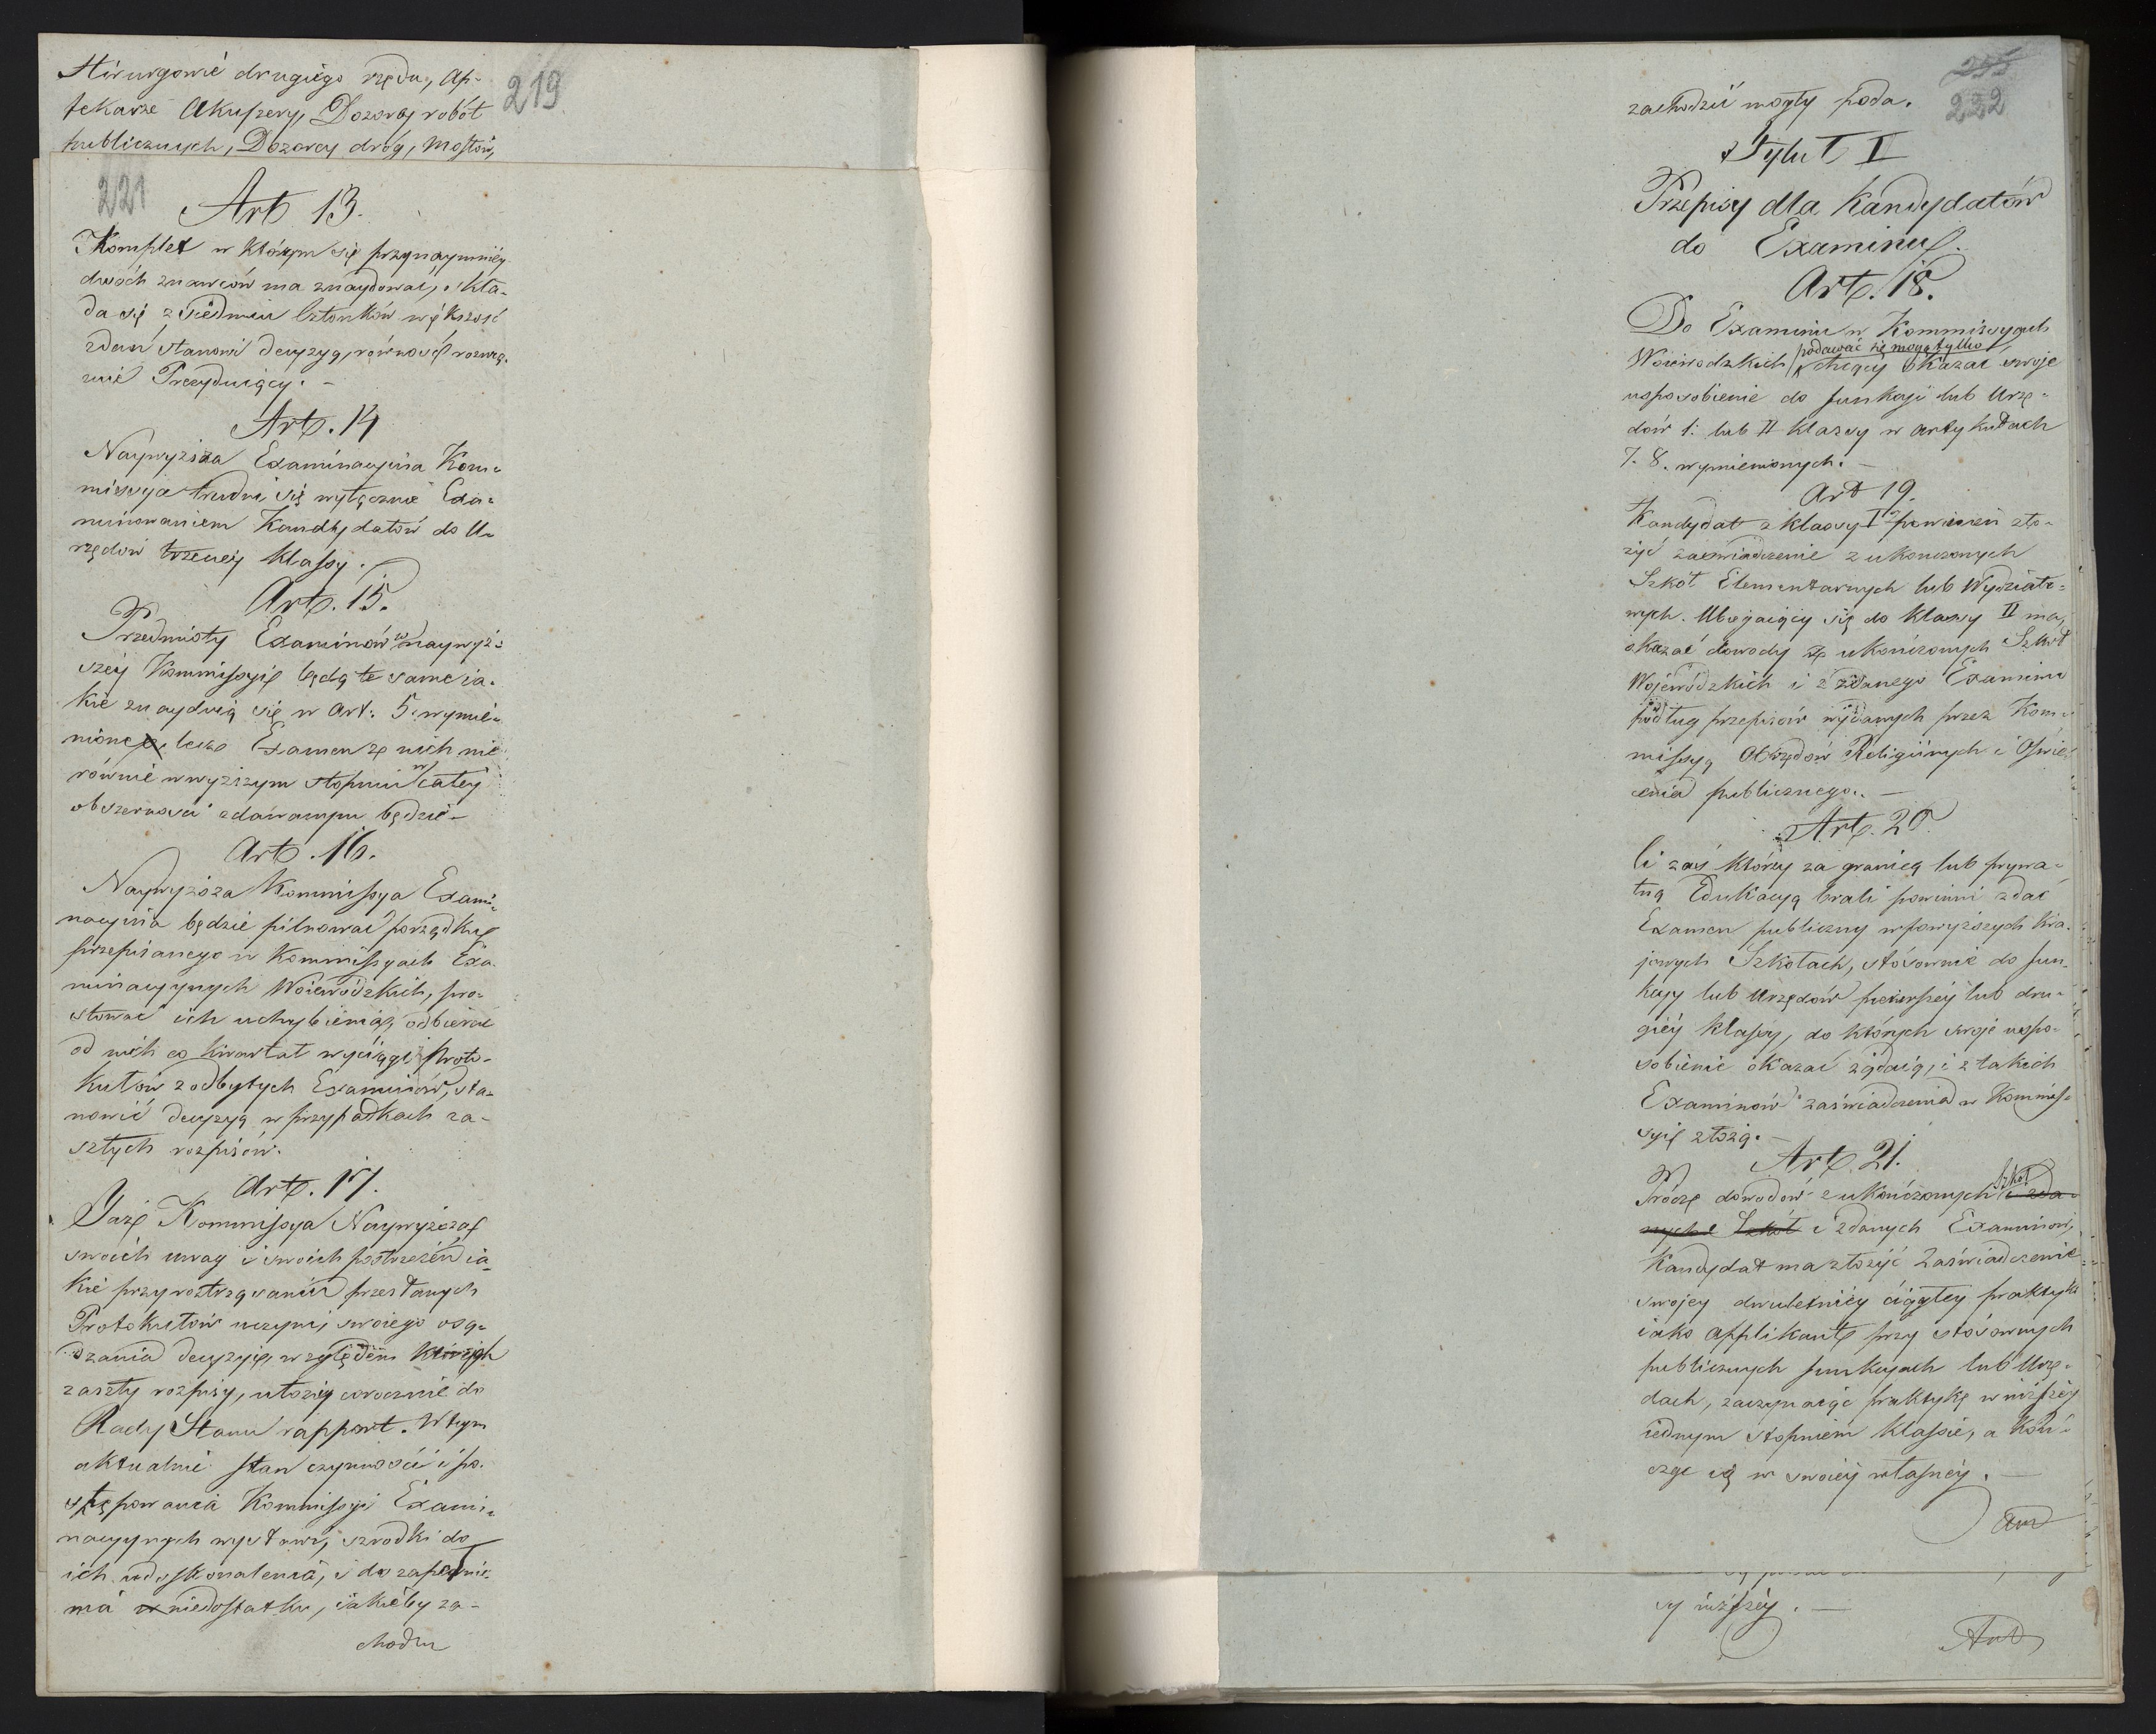 Hirurgowie drugiego rzędu, Ap-
tekarze Akuszery, Dozorcy robót
publicznych, Dozorcy dróg, Mostów,
219
221
Art 13.
Komplet w którym się przynaymniey
dwóch znawców ma znaydować, skła-
da się z siedmiu Członków większość
zdań stanowi decyzyą, równość rozwią-
zuie Prezyduiący. -
Art. 14
Naywyższa Examinacyina Kom-
missyja trudni się wyłącznie Exa-
minowaniem Kandydatów do U-
rzędów trzeciey klassy.
Art. 15.
Przedmioty Examinów w naywyż-
szey Kommissyi będą te same ia-
kie znayduią się w Art: 5. wymie-
nione, lecz Examen z nich nie
równie w wyższym stopniu w całey
obszerności zdawanym będzie -
Art. 16.
Naywyższa Kommissya Exami-
nacyina będzie pilnować porządku
przepisanego w Kommissyach Exa-
minacyynych Woiewódzkich, pro-
stować ich uchybienia, odbierać
od nich co kwartał wyciągi z Proto-
kułów z odbytych Examinów, sta-
nowić decyzyą w przypadkach za-
szłych rozpisów.
Art. 17.
Taż Kommissya Naywyższa
swoich uwag i swoich postrzeżeń ia-
kie przy roztrząsaniu przesłanych
Protokułów uczyni, swoiego osą-
dzania decyzyi, względem których
zaszły rozpisy, ułoży corocznie do
Rady Stanu rapport. W tym
aktualnie stan czynności i po-
stępowania Kommissyi Exami-
nacyynych wystawi, szrodki do
ich udoskonalenia, i do zapełnie-
nia niedostatku, iakieby za-
chodzu
255
222
zachodzić mogły poda.
Tytuł I
Przepisy dla Kandydatów
do Examinu.
Art. 18.
Do Examinu w Kommissyach
podawać się mogą tylko
Woiewodzkich chcący okazać swoje
usposobienie do funkcyi lub Urzę-
dów 1: lub II klassy w artykułach
7. 8. wymienionych. -
Art 19.
Kandydat z klassy I powinien zło-
żyć zaświadczenie z ukonczonych
Szkół Elementarnych lub Wydziało-
wych. Ubiegaiący się do klassy II ma,
okazać dowody z ukończonych Szkół
Wojewódzkich i z zdanego Examinu
podług przepisów wydanych przez Kom-
missyą Obrzędów Religiinych i Oświe-
cenia publicznego. -
Art. 20
Ci zaś którzy za granicą lub prywa-
tną Edukacyą brali powinni zdać
Examen publiczny w powyższych kra-
jowych Szkołach, stósownie do fun-
kcyy lub Urzędów pierwszey lub dru-
giey klassy, do których swoje uspo-
sobienie okazać żądaią, i z takich
Examinów zaświadczenia w Kommis-
syi złożą. -
Art. 21.
Szkół
Prócz dowodów z ukończonych i zda-
nych Szkół i zdanych Examinów,
Kandydat ma złożyć Zaświadczenie
swojey dwuletniey ciągłey praktyki
iako Applikant przy stósownych
publicznych funkcyach lub Urzę-
dach, zaczynaiąc praktykę w niższey
iednym stopniem klassie, a koń-
cząc ią w swoiey własney. -
Art
sy niższey. -
Art